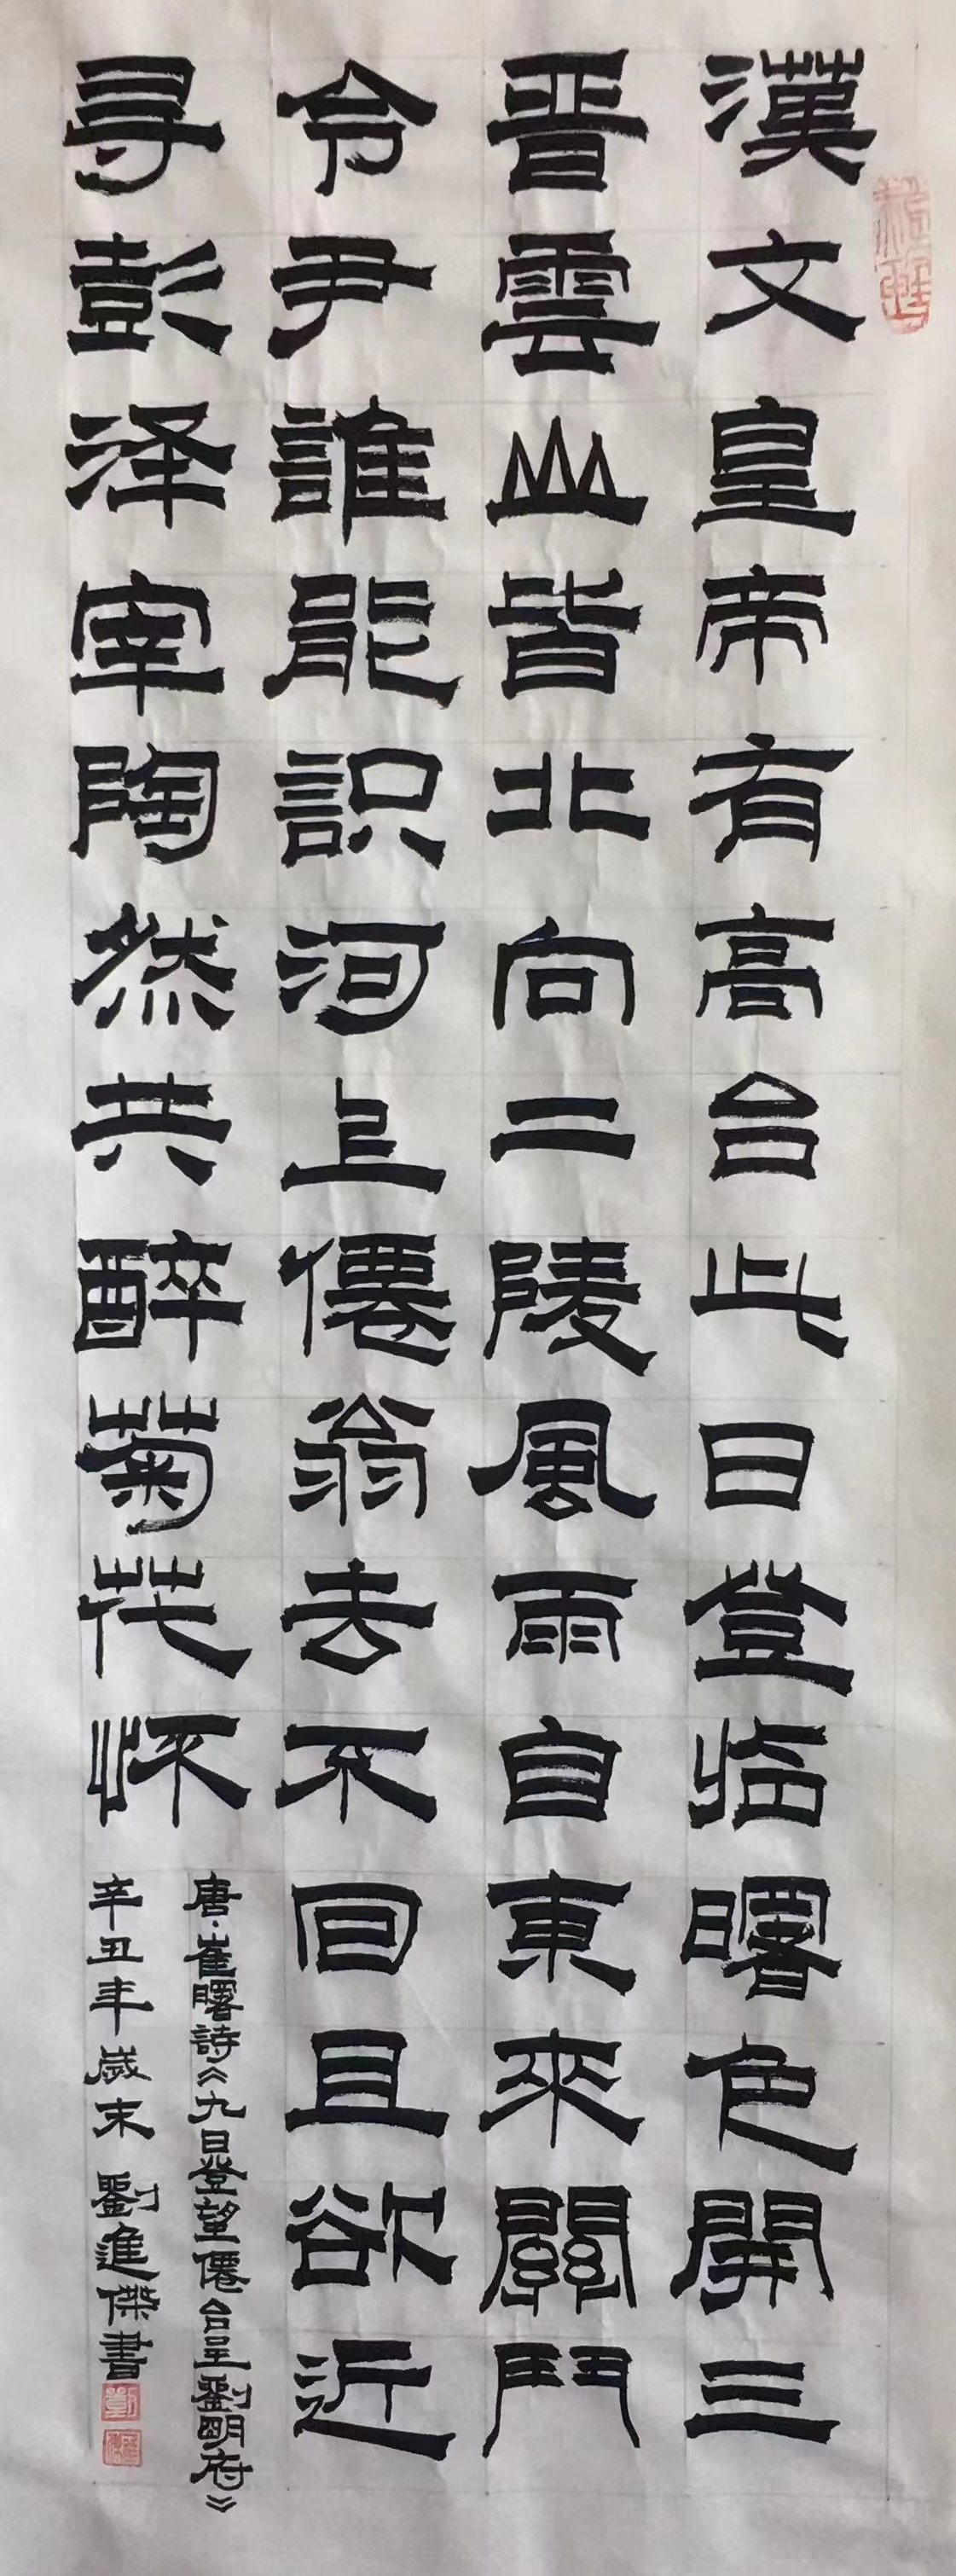 漢文皇帝有高台此日登临曙色開三
晋雲山皆北向二陵風雨自東來關門
令尹誰能識河上僊翁去不回且欲近
寻彭泽宰陶然共醉菊花怀
唐·崔曙詩《九日登望僊台呈劉明府》
辛丑年歲末 劉進傑書